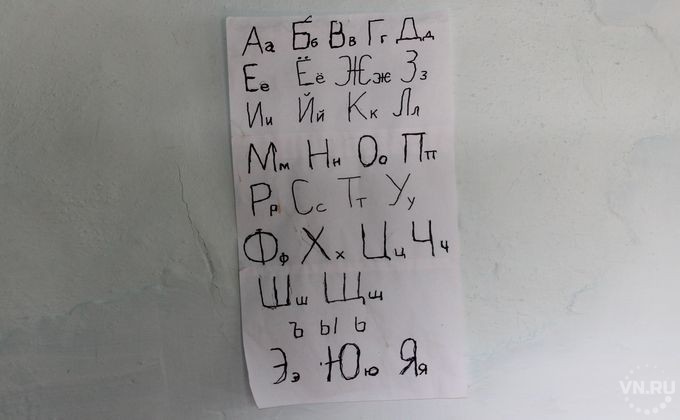 Аа Бб Вв Гг Дд
Ее Ёё Жж Зз
Ии Йй Кк Лл
Мм Нн Оо Пп
Рр Сс Тт Уу
Фф Хх Цц Чч
Шш Щщ
ъ ы ь
Ээ Юю Яя
VN.RU